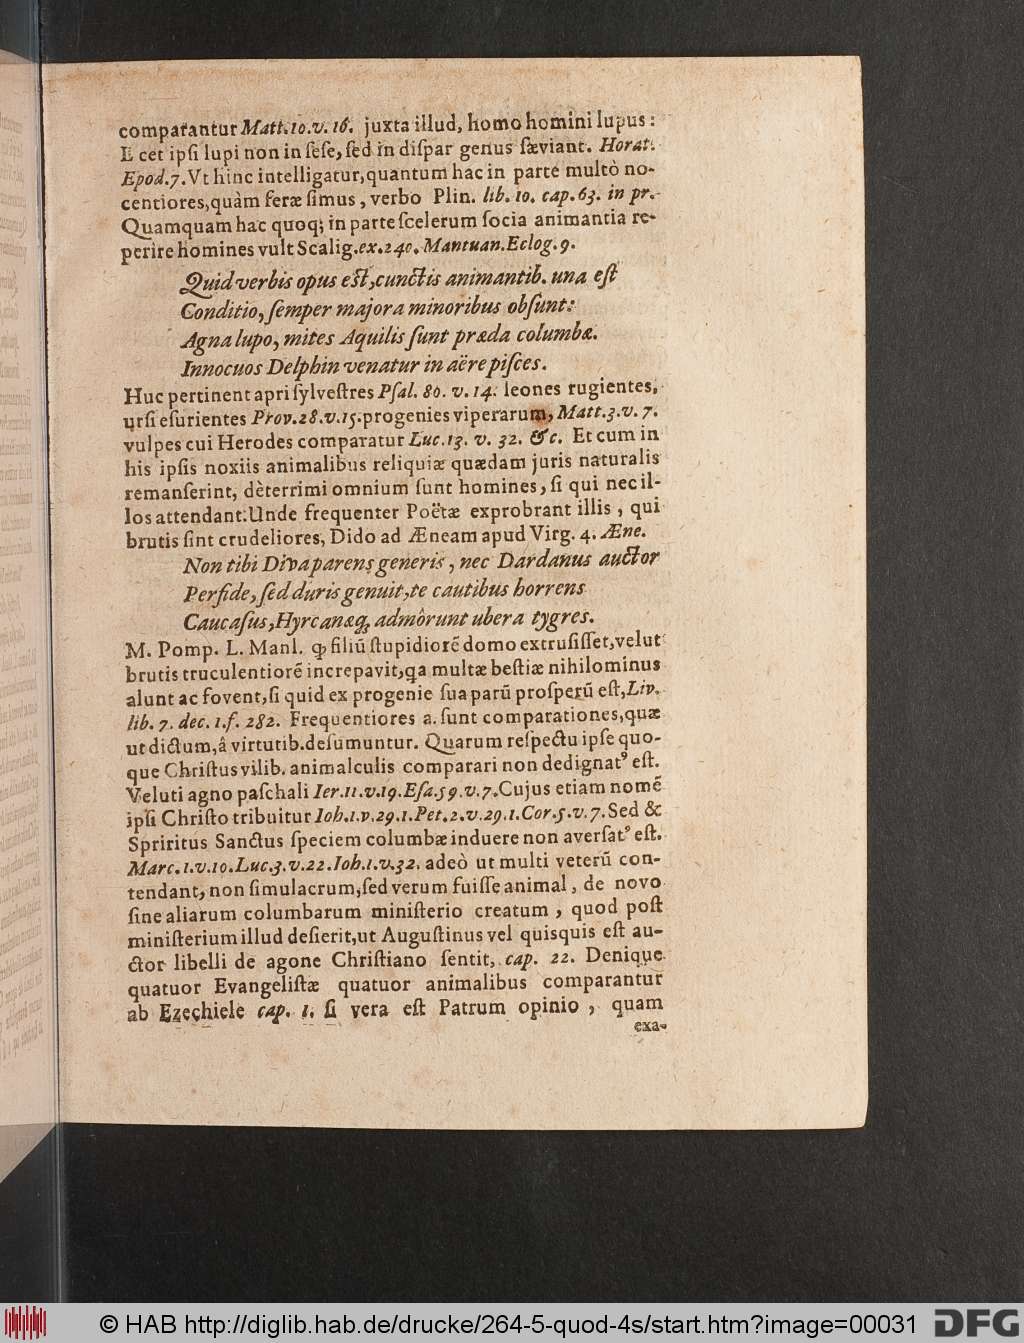 comparantur Matt.10.v.16. juxta illud, homo homini lupus:
E cet ipſi lupi non in ſeſe, ſed in diſpar genus ſæviant. Horat.
Epod.7. Vt hinc intelligatur, quantum hac in parte multò no-
centiores, quàm feræ ſimus, verbo Plin. lib. 10. cap. 63. in pr.
Quamquam hac quoq; in parte ſcelerum ſocia animantia re-
perire homines vult Scalig. ex. 240. Mantuan. Eclog. 9.
Quid verbis opus eſt, cunctis animantib. una eſt
Conditio, ſemper majora minoribus obſunt:
Agna lupo, mites Aquilis ſunt præda columbæ.
Innocuos Delphin venatur in aëre piſces.
Huc pertinent apri ſylveſtres Pſal. 80. v. 14. leones rugientes,
urſi eſurientes Prov. 28.v.15. progenies viperarum, Matt.3.v. 7.
vulpes cui Herodes comparatur Luc.13. v. 32. &c. Et cum in
his ipſis noxiis animalibus reliquiæ quædam juris naturalis
remanſerint, dèterrimi omnium ſunt homines, ſi qui nec il-
los attendant: Unde frequenter Poëtæ exprobrant illis, qui
brutis ſint crudeliores, Dido ad Æneam apud Virg. 4. Æne.
Non tibi Diva parens generis, nec Dardanus auctor
Perfide, ſed duris genuit, te cautibus horrens
Caucaſus, Hyrcanæq; admôrunt ubera tygres.
M. Pomp. L. Manl. ꝙ filiū ſtupidiorē domo extruſiſſet, velut
brutis truculentiorē increpavit, qa multæ beſtiæ nihilominus
alunt ac fovent, ſi quid ex progenie ſua parū proſperū eſt, Liv.
lib. 7. dec. 1. f. 282. Frequentiores a. ſunt comparationes, quæ
ut dictum, â virtutib. deſumuntur. Quarum reſpectu ipſe quo-
que Chriſtus vilib. animalculis comparari non dedignatꝰ eſt.
Veluti agno paſchali Ier.11.v.19. Eſa.59.v.7. Cujus etiam nomē
ipſi Chriſto tribuitur Ioh.1.v.29.1.Pet.2.v.29.1.Cor.5.v.7. Sed &
Spriritus Sanctus ſpeciem columbæ induere non averſatꝰ eſt.
Marc.1.v.10. Luc.3.v.22. Ioh.1.v.32. adeò ut multi veterū con-
tendant, non ſimulacrum, ſed verum fuiſſe animal, de novo
ſine aliarum columbarum miniſterio creatum, quod poſt
miniſterium illud deſierit, ut Auguſtinus vel quisquis eſt au-
ctor libelli de agone Chriſtiano ſentit, cap. 22. Denique
quatuor Evangeliſtæ quatuor animalibus comparantur
ab Ezechiele cap. 1. ſi vera eſt Patrum opinio, quam
exa-
© HAB http://diglib.hab.de/drucke/264-5-quod-4s/start.htm?image=00031
DFG